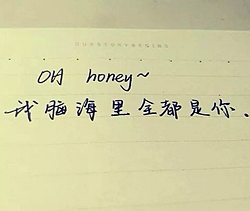 OH honey~
我脑海里全都是你.